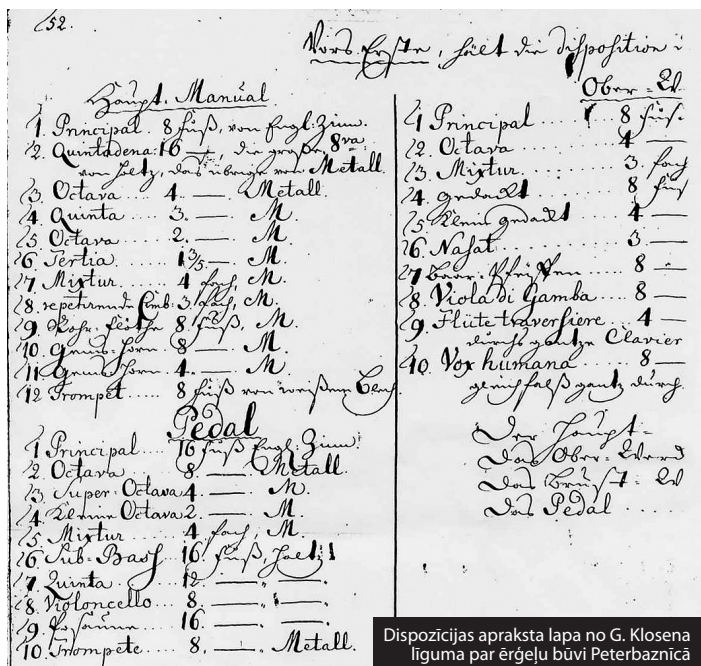 52.
Vors Erste, hält die Disposition i
Haupt-Manual
1. Principal 8 fuß, von Engl. Zinn.
2. Quintadena 16 — die große 8va
von Holtz, das übrige von Metall.
3. Octava 4. — Metall.
4. Quinta 3. — M.
5. Octava 2. — M.
6. Tertia 1 3/5 — M.
7. Mixtur 4 fach, M.
8. repetirende Cimb: 3 fach, M.
9. Rohr-flöthe 8 fuß, M.
10. Gems-horn 8 — M.
11. Gems-horn 4. — M.
12 Trompet 8 fuß von weißem Blech
Pedal
1 Principal 16 fuß Engl. Zinn.
2. Octava 8 — Metall.
3. Super-Octava 4. — M.
4. Kleine Octava 2. — M.
5. Mixtur 4 fach, M.
6. Sub-Bass 16 fuß, holtz
7. Quinta 12 — „ — „
8. Violoncello 8. — „ — „
9. Posaune 16 — „ — „
10. Trompete 8. — Metall.
Ober-W
1 Principal 8 fus.
2. Octava 4 —
3. Mixtur 3. fach
4. gedackt 8 fus
5. Klein gedackt 4 —
6. Nasat 3 —
7 Baar-Pfeiffen 8 —
8. Viola di Gamba 8 —
9. Flüte traversiere 4 —
durchs gantze Clavier
10. Vox humana 8 —
gleichfalß gantz durch
Der Haupt-
Das Ober-Werck
Das Brust-W
Das Pedal
Dispozīcijas apraksta lapa no G. Klosena
līguma par ērģeļu būvi Peterbaznīcā